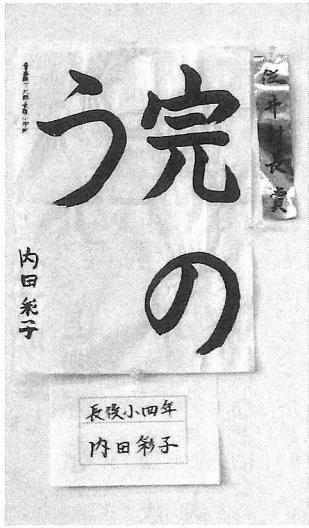 賞
完の
う
内田彩子
長後小四年
内田彩子